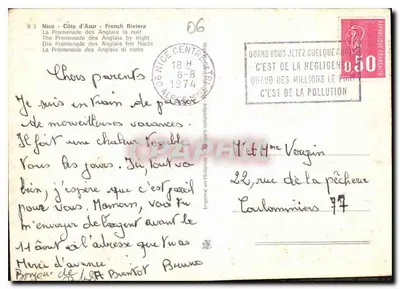 06
B 2 Nice - Côte d'Azur - French Riviera
La Promenade des Anglais la nuit
The Promenade des Anglais by night
Die Promenade des Anglais bei Nacht
La Promenade des Anglais di notte
06 NICE CENTRE
18 H
8-8
1974
QUAND VOUS JETEZ QUELQUE
C'EST DE LA NEGLIGENCE
QUAND DES MILLIONS LE
C'EST DE LA POLLUTION
0.50
Chers parents
Je suis en train de passer
de merveilleuses vacances.
Il fait une chaleur terrible
tous les jours. Ici, tout va
bien, j'espère que c'est pareil
pour vous. Maman, vas tu
m'envoyer de l'argent avant le
11 août à l'adresse que tu as
Merci d'avance.
Bruno
Bonjour de
Mr et Mme Vougin
22, rue de la pêcherie
Coulommiers 77